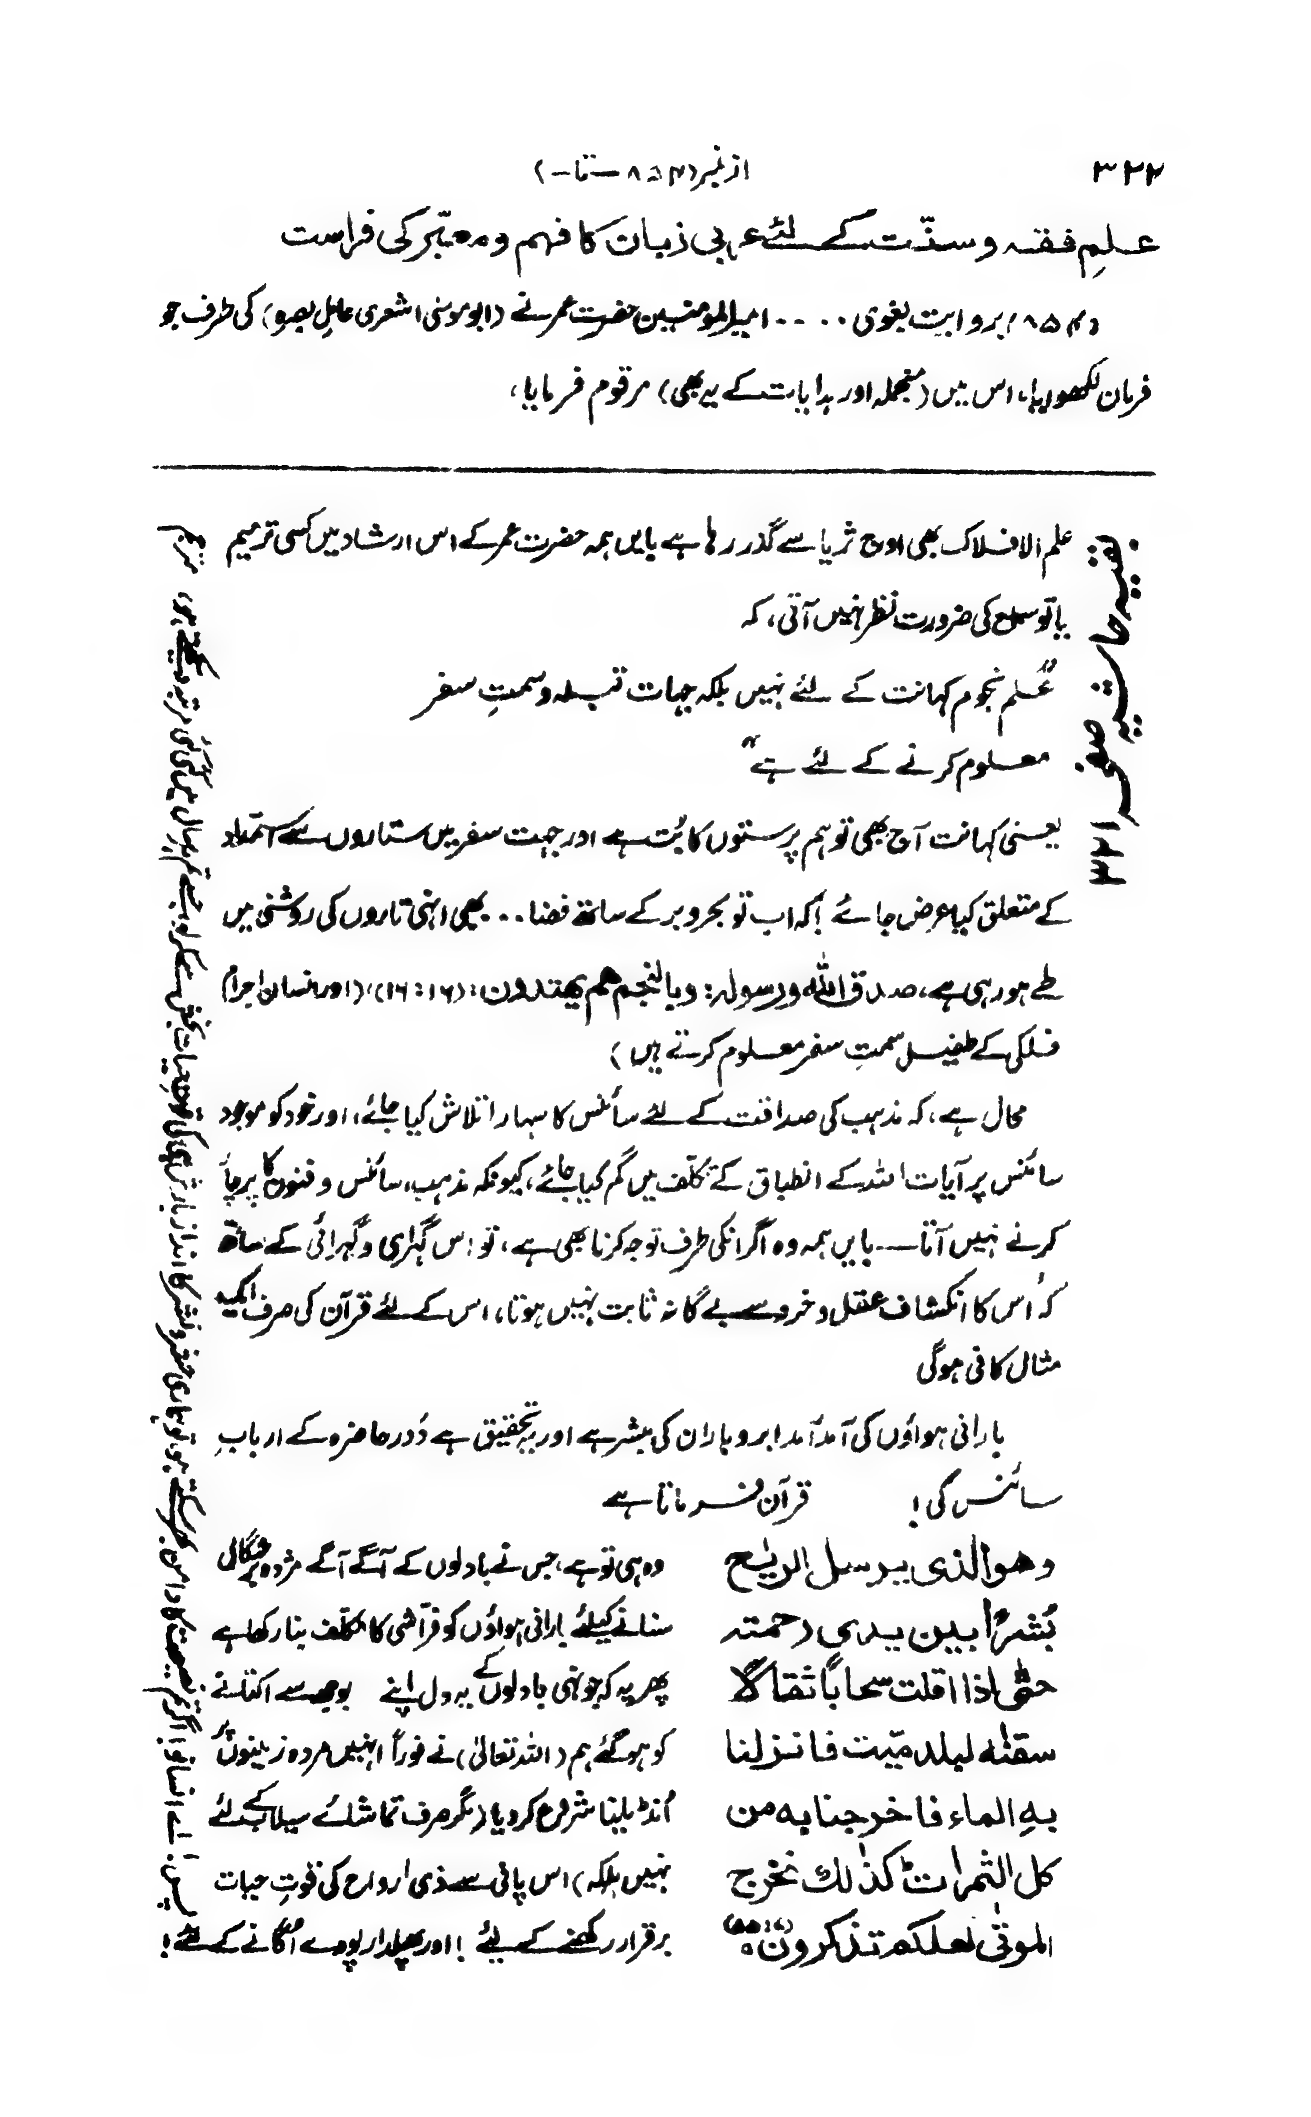 ۳۲۲
از نمبر (۸۵۴ — تا —)
علمِ فقہ و سنّت کے لئے عربی زبان کا فہم و معبّر کی فراست
(۸۵۴) بروایت بغوی .... امیرالمومنین حضرت عمر نے (ابو موسیٰ اشعری عاملِ بصرہ) کی طرف جو
فرمان لکھوایا، اس میں (منجملہ اور ہدایات کے یہ بھی) مرقوم فرمایا،
بقیہ حاشیہ صفحہ ۳۲۱
علم الافلاک بھی اوج ثریا سے گذر رہا ہے بایں ہمہ حضرت عمر کے اس ارشاد میں کسی ترمیم
یا توسیع کی ضرورت نظر نہیں آتی، کہ
"علم نجوم کہانت کے لئے نہیں بلکہ جہات قبلہ و سمتِ سفر
معلوم کرنے کے لئے ہے"
یعنی کہانت آج بھی توہم پرستوں کا بُت ہے اور جہت سفر میں ستاروں سے استمداد
کے متعلق کیا عرض جائے! کہ اب تو بحر و بر کے ساتھ فضا... بھی انہی تاروں کی روشنی میں
طے ہو رہی ہے، صدق اللہ ورسولہ: وبالنجم هم یھتدون: (۱۶:۱۶)، (اور انسان اجرام
فلکی کے طفیل سمتِ سفر معلوم کرتے ہیں)
محال ہے، کہ مذہب کی صداقت کے لئے سائنس کا سہارا تلاش کیا جائے، اور خود کو موجود
سائنس پر آیات اللہ کے انطباق کے تکلّف میں گم کیا جائے، کیونکہ مذہب، سائنس و فنون کا پرچا
کرنے نہیں آتا — بایں ہمہ وہ اگر انکی طرف توجہ کرتا بھی ہے، تو اس گہرائی و گیرائی کے ساتھ
کہ اُس کا انکشاف عقل و خرد سے بے گانہ ثابت نہیں ہوتا، اس کے لئے قرآن کی صرف ایک
مثال کافی ہوگی
بارانی ہواؤں کی آمد آمد ابر و باراں کی مبشر ہے اور یہ تحقیق ہے دَور حاضرہ کے اربابِ
سائنس کی! قرآن فرماتا ہے
وھوالذی یرسل الریٰح
بُشرًا بین یدی رحمتہ
حتّٰی اذا اقلت سحابًا ثقالا
سقنٰہ لبلد میّت فانزلنا
بہِ الماء فاخرجنا بہ من
کل الثمرات کذٰلك نخرج
الموتٰی لعلکم تذکرون (۷:۵۵)
وہ ہی تو ہے، جس نے بادلوں کے آگے آگے مژدہ برشگالی
سنانے کیلئے بارانی ہواؤں کو فرّاشی کا مکلّف بنا رکھا ہے
پھر یہ کہ جونہی بادلوں کے یہ دل اپنے بوجھ سے اکتانے
کو ہوگئے ہم (اللہ تعالیٰ) نے فوراً انہیں مردہ زمینوں پر
اُنڈیلنا شروع کر دیا (مگر صرف تماشائے سیلاب کے لئے
نہیں بلکہ) اس پانی سے ذی ارواح کی قوتِ حیات
برقرار رکھنے کے لیئے! اور پھلدار پودے اگانے کے لئے!
پس! اے انسانو! اگر تم نصیحت کا دامن بھر سکتے ہو، تو ہماری حشر و نشر کا انداز بارش ہی کی قوتِ حیات بخش سے کر لو، جسے تم ہر سال میں کئی کئی مرتبہ دیکھتے ہو، مترجم